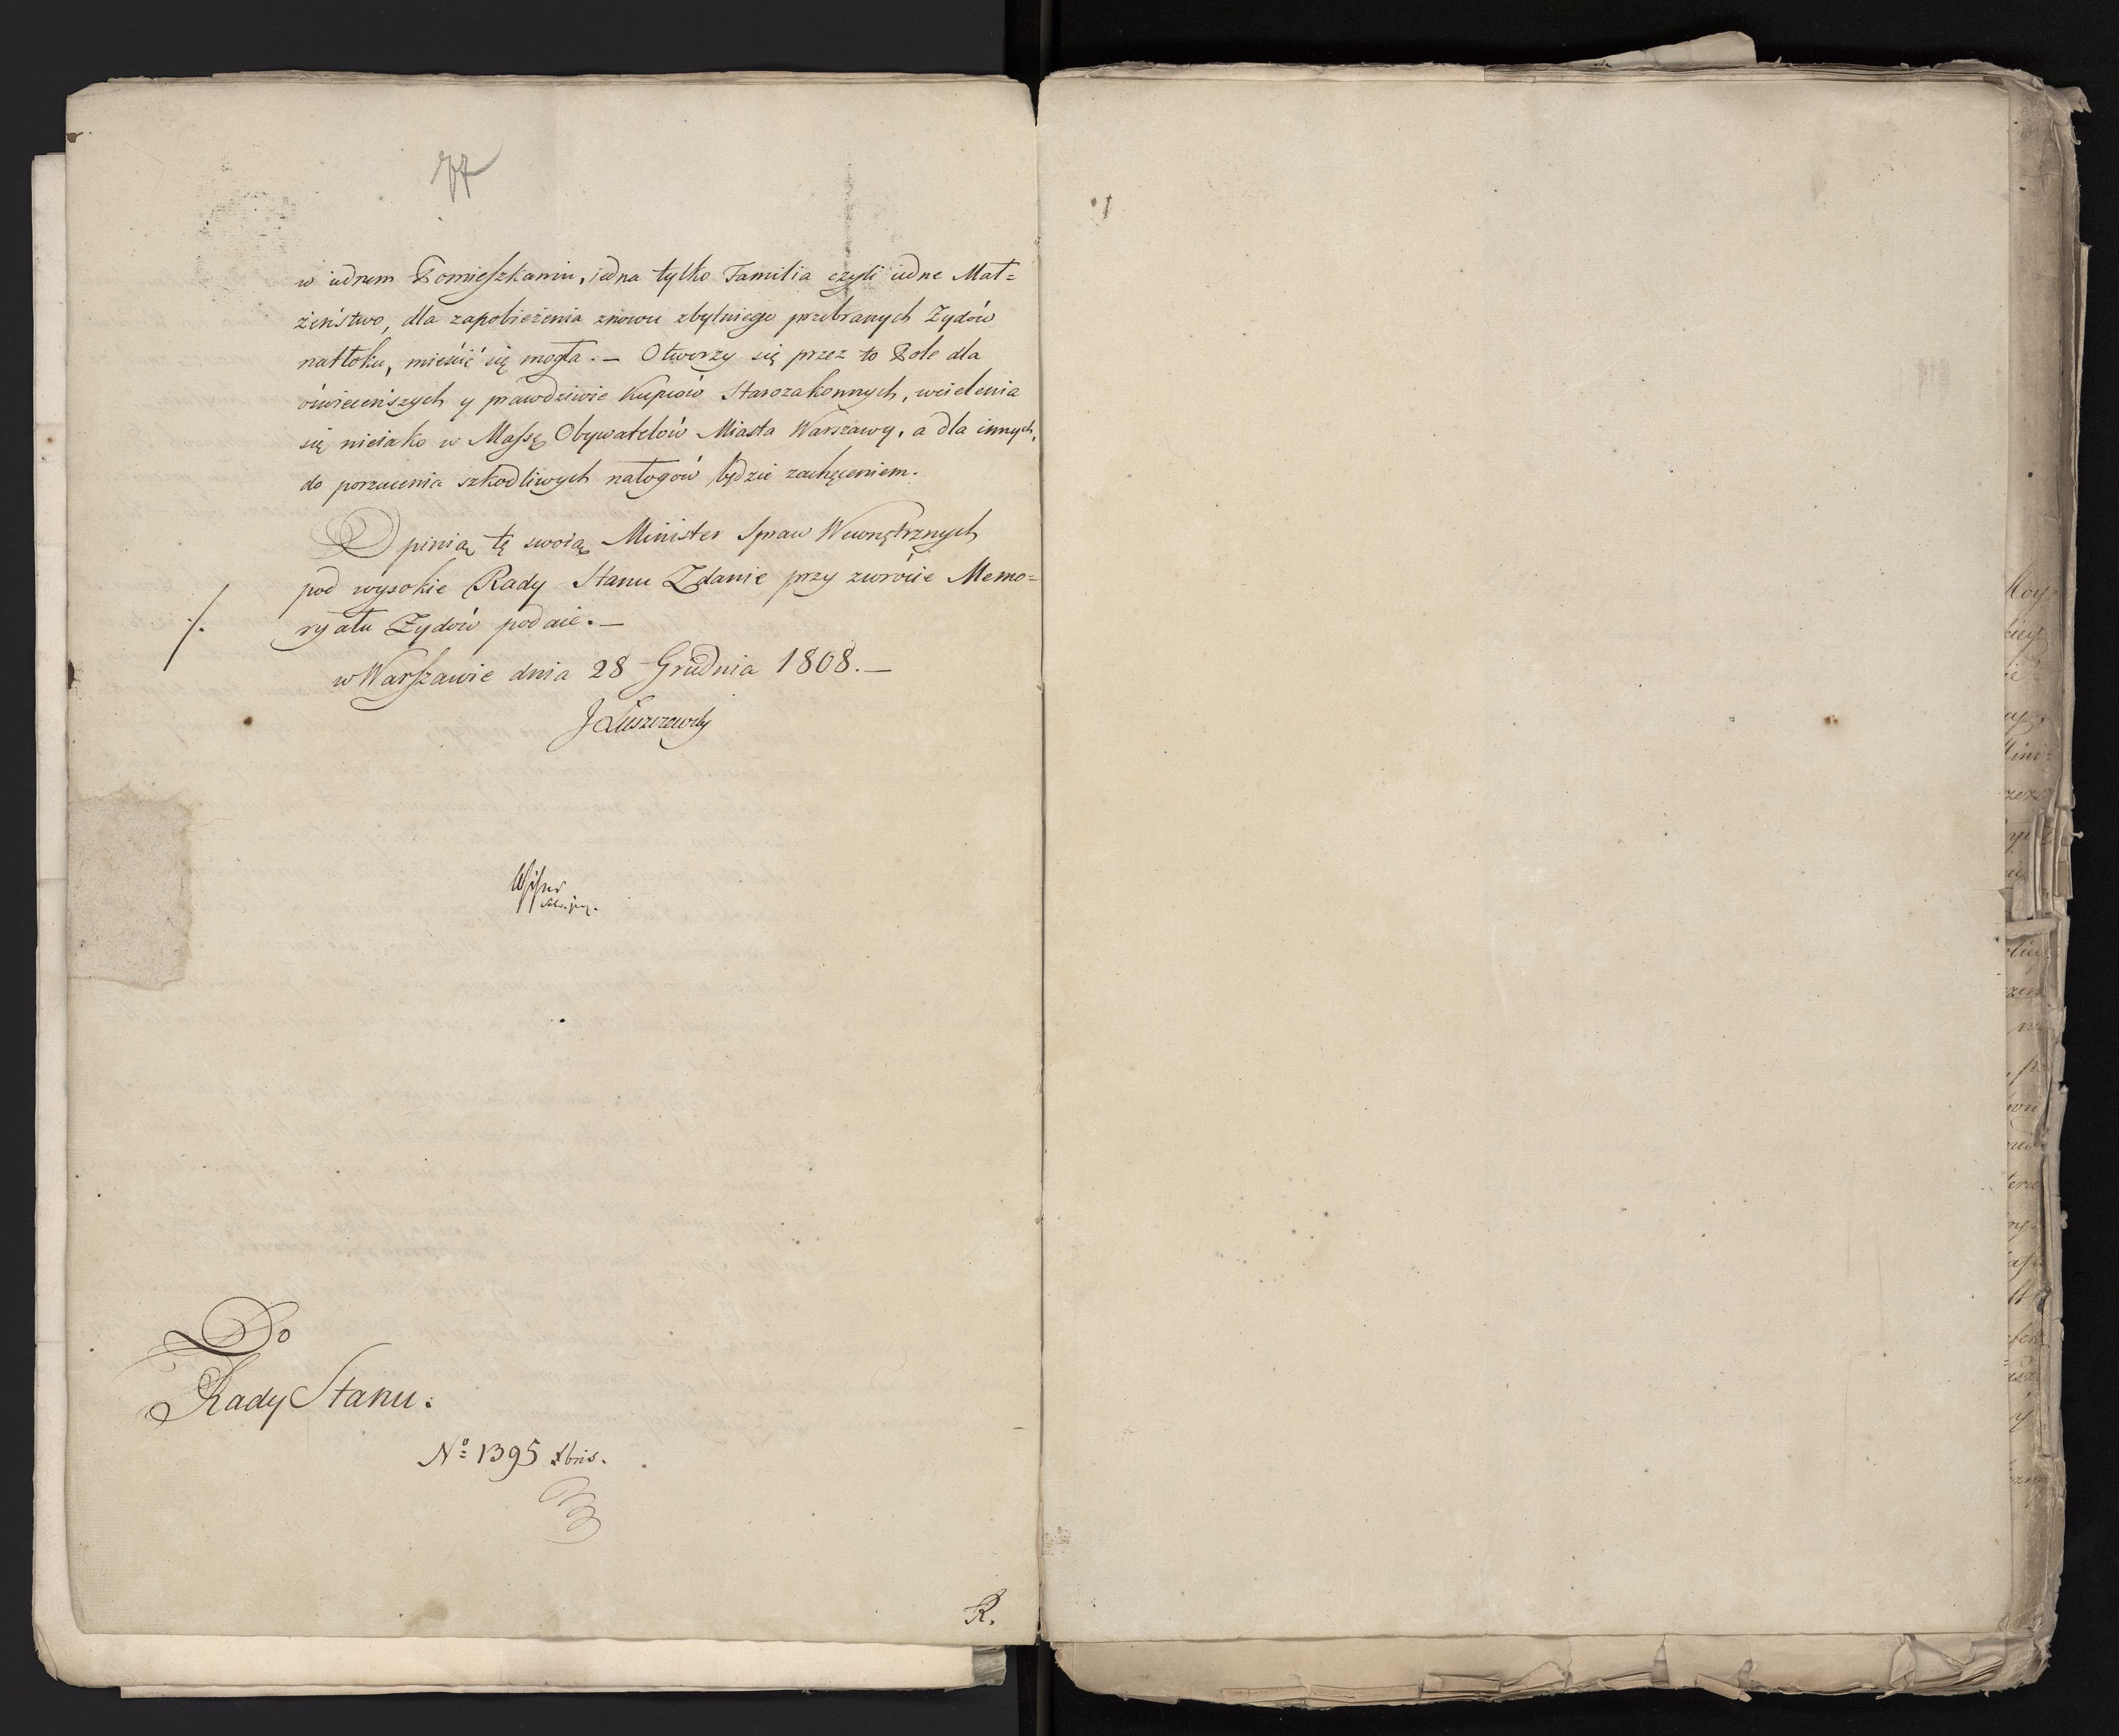 77
w iednem Pomieszkaniu, iedna tylko Familia czyli iedne Mał=
żeństwo, dla zapobieżenia znowu zbytniego przebranych Żydów
natłoku, mieścić się mogła. — Otworzy się przez to Pole dla
oświeceńszych y prawdziwie Kupców Starozakonnych, wcielenia
się nieiako w Massę Obywatelów Miasta Warszawy, a dla innych,
do porzucenia szkodliwych nałogów będzie zachęceniem.
Opinią tę swoią Minister Spraw Wewnętrznych
pod wysokie Rady Stanu Zdanie przy zwrócie Memo=
ryału Żydów podaie. —
w Warszawie dnia 28 Grudnia 1808. —
J Łuszczewski
Do
Rady Stanu.
No 1395 Xbris.
R.